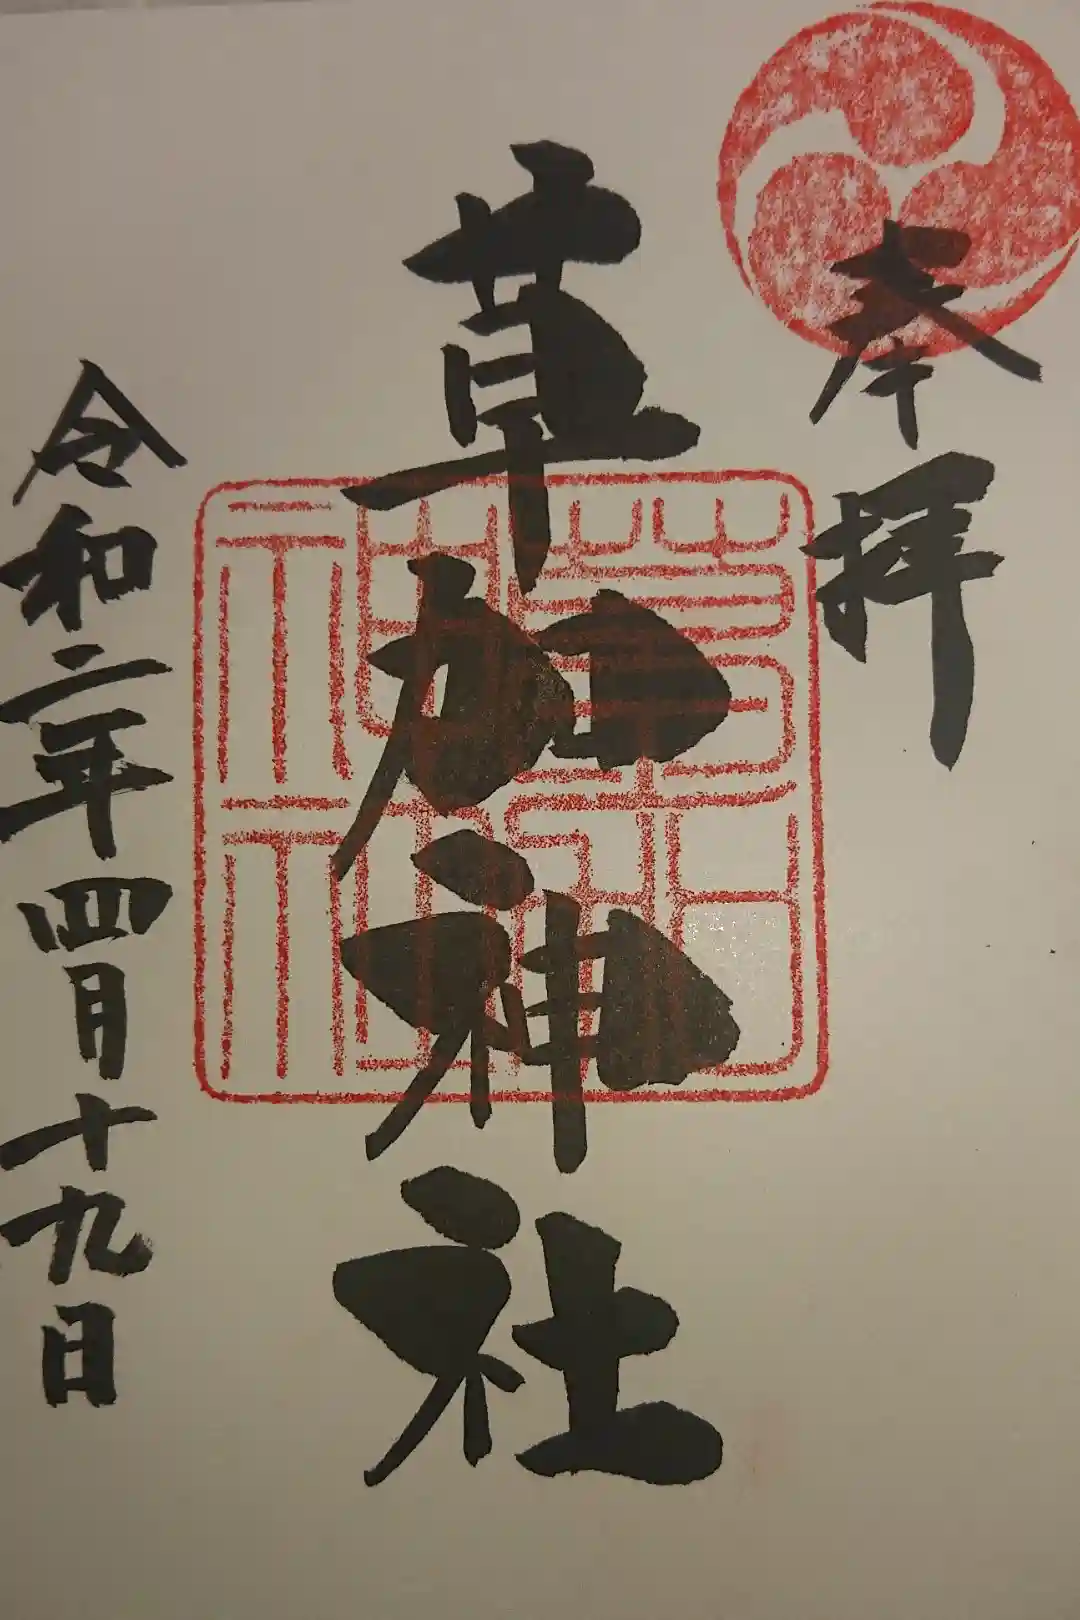 奉拝
草加神社
草加神社
令和二年四月十九日